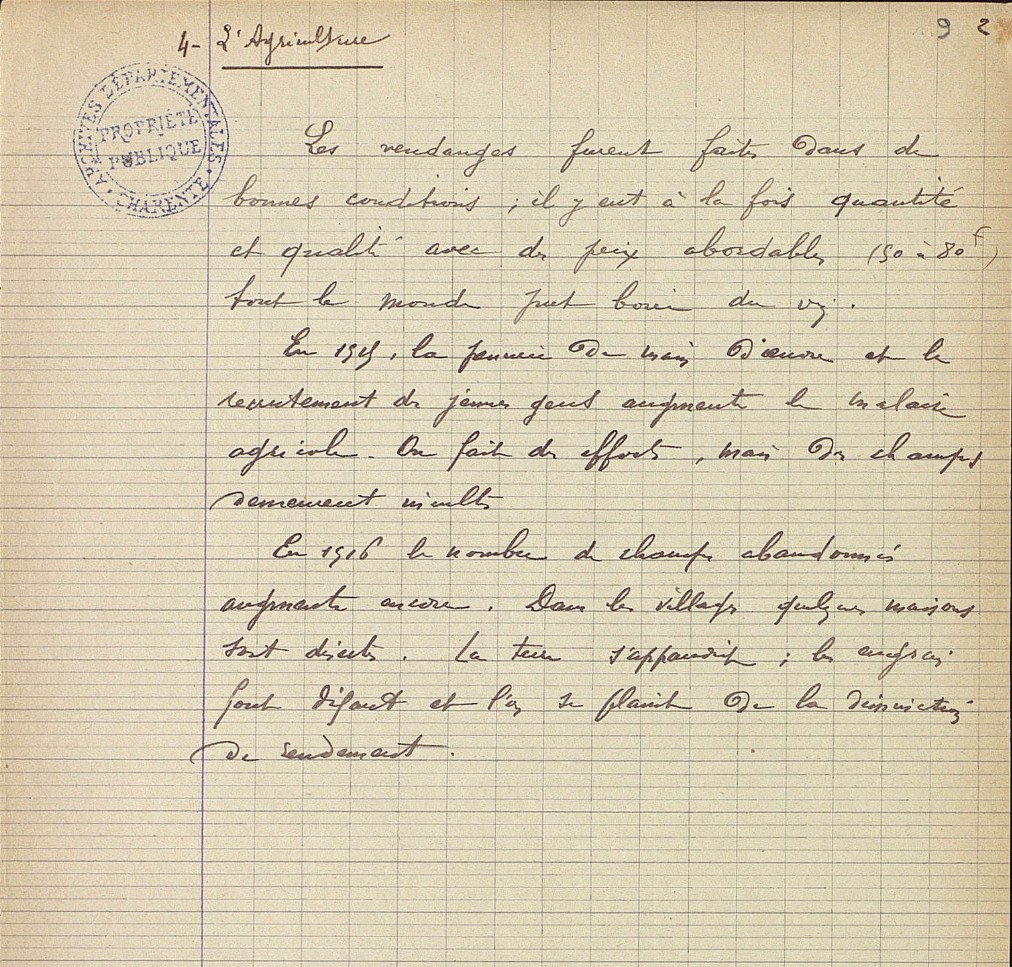 4- L'Agriculture
9 2
ARCHIVES DÉPARTEMENTALES
PROPRIÉTÉ
PUBLIQUE
CHARENTE
Les vendanges furent faites dans de
bonnes conditions ; il y eut à la fois quantité
et qualité avec des prix abordables (50 à 80 F)
tout le monde put boire du vin.
En 1915, la pénurie de main d'œuvre et le
recrutement des jeunes gens augmente le malaise
agricole. On fait des efforts, mais des champs
demeurent incultes
En 1916 le nombre de champs abandonnés
augmente encore. Dans les villages quelques maisons
sont désertes. La terre s'appauvrit ; les engrais
font défaut et l'on se plaint de la diminution
de rendement.